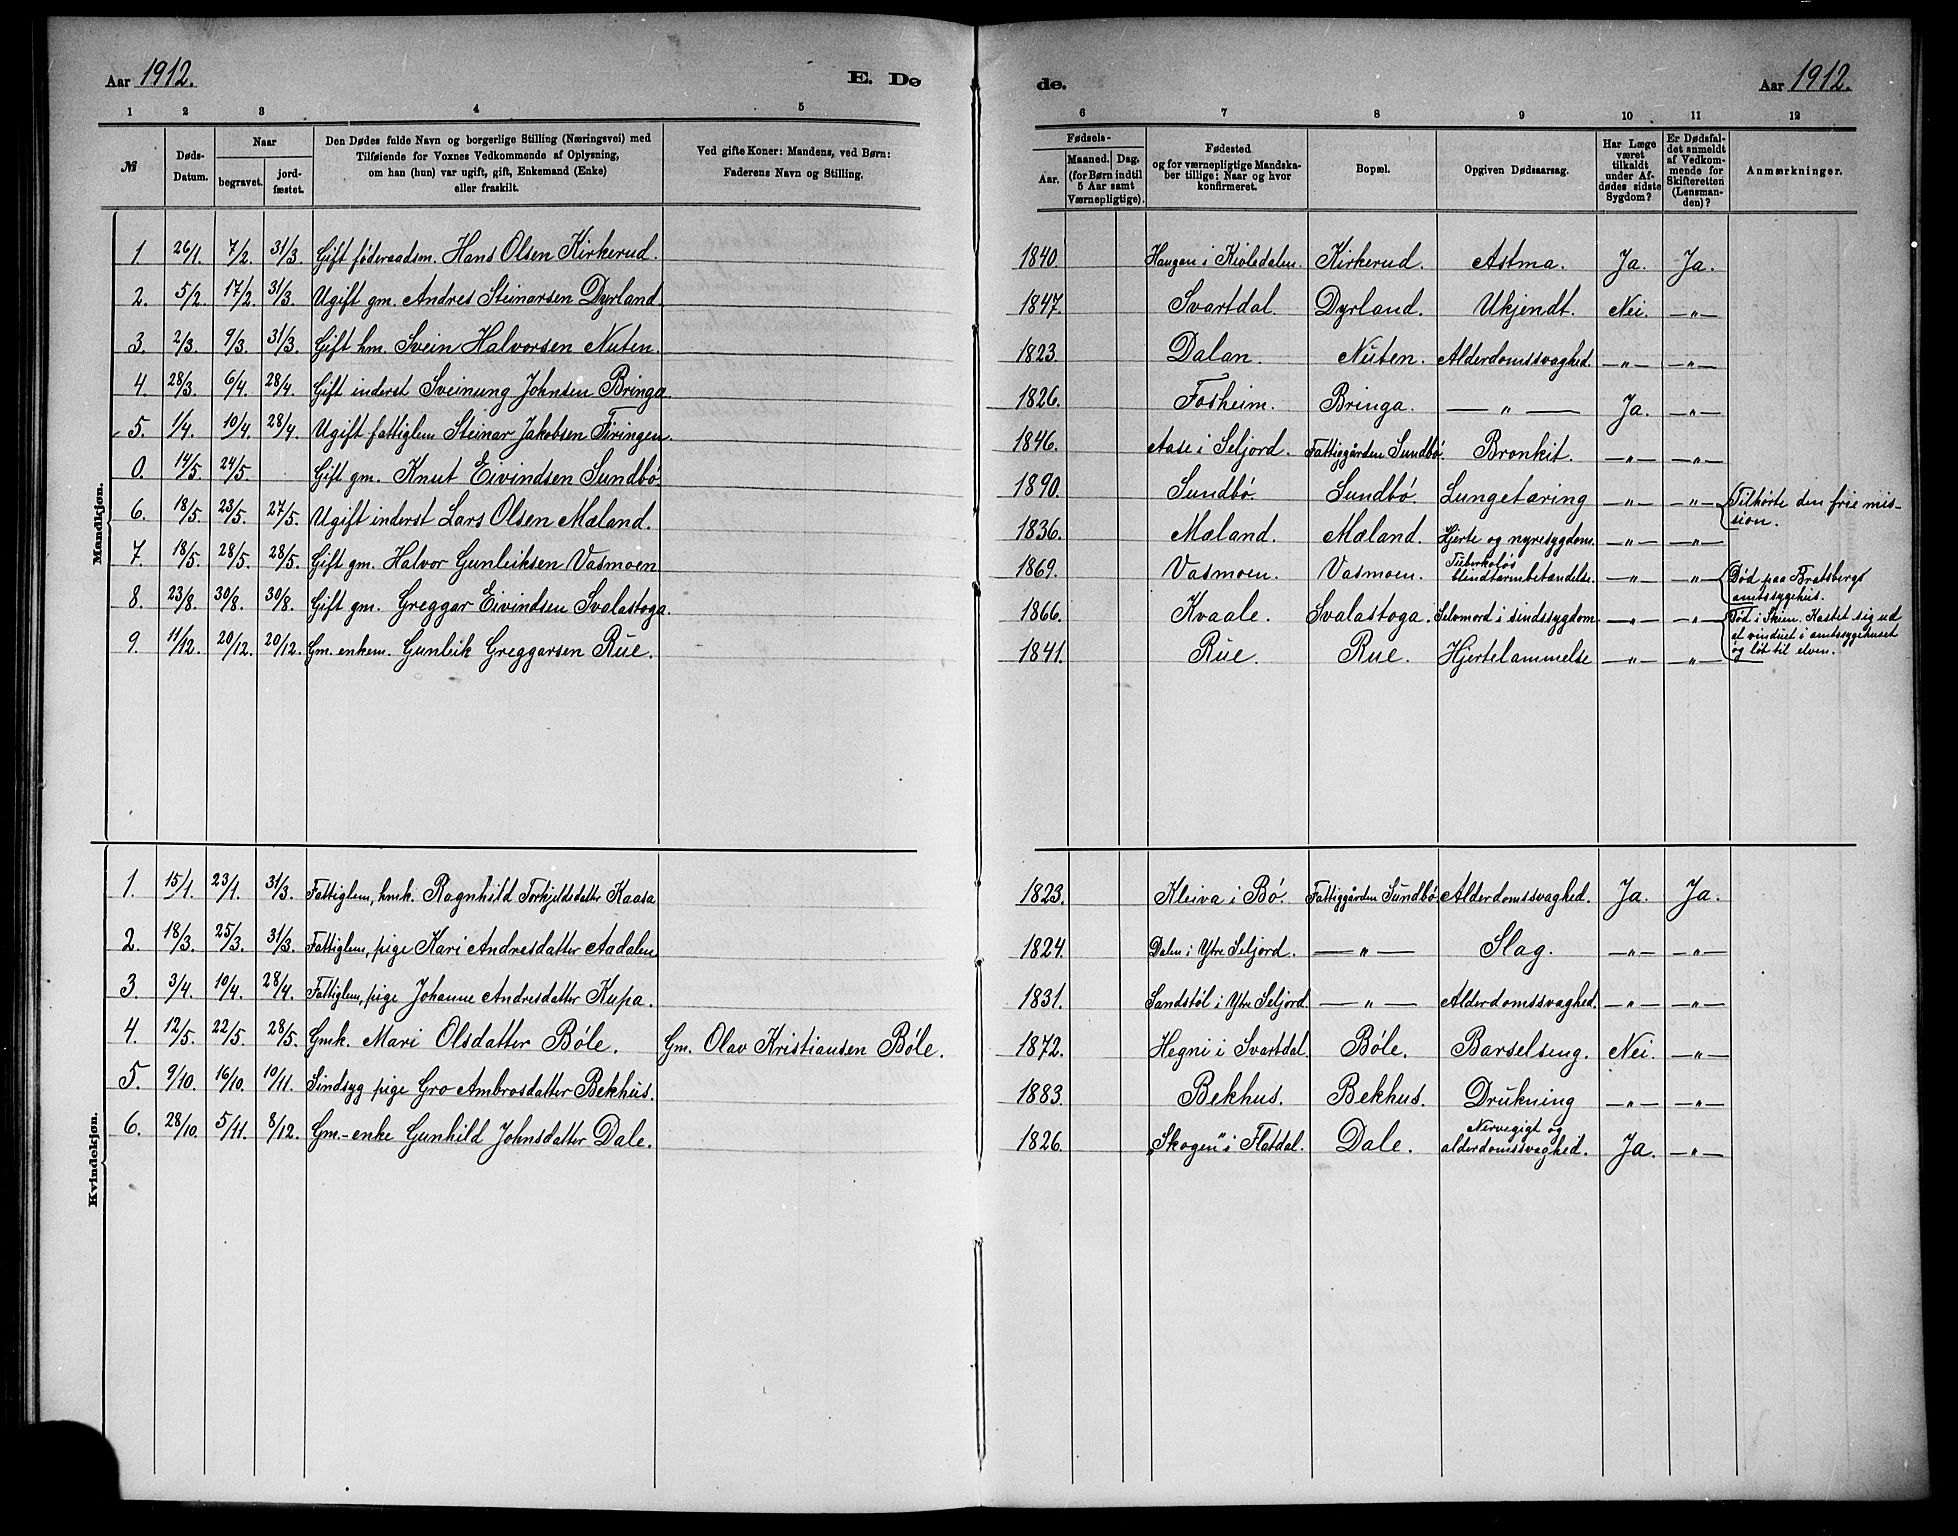 Aar 1912.
E. Dø
de.
Aar 1912.
1 2 3 4 5
6 7 8 9 10 11 12
№
Døds-
Datum.
Naar
begravet.
jord-
fæstet.
Den Dødes fulde Navn og borgerlige Stilling (Næringsvei) med
Tilføiende for Voxnes Vedkommende af Oplysning,
om han (hun) var ugift, gift, Enkemand (Enke)
eller fraskilt.
Ved gifte Koner: Mandens, ved Børn:
Faderens Navn og Stilling.
Fødsels-
Aar.
Maaned. Dag.
(for Børn indtil
5 Aar samt
Værnepligtige).
Fødested
og for værnepligtige Mandska-
ber tillige: Naar og hvor
konfirmeret.
Bopæl.
Opgiven Dødsaarsag.
Har Læge
været
tilkaldt
under Af-
dødes sidste
Sygdom?
Er Dødsfal-
det anmeldt
af Vedkom-
mende for
Skifteretten
(Lensman-
den)?
Anmærkninger.
Mandkjøn.
1. 26/1. 7/2. 31/3. Gift føderaadsm. Hans Olsen Kirkerud. 1840. Haugen i Kivledalen. Kirkerud. Astma. Ja. Ja.
2. 5/2 17/2. 31/3. Ugift gm. Andres Steinarsen Dyrland 1847. Svartdal. Dyrland. Ukjendt. Nei. —„—
3. 2/3. 9/3. 31/3. Gift hm. Svein Halvorsen Nuten. 1823. Dalan. Nuten. Alderdomssvaghed. —„— —„—
4. 28/3. 6/4. 28/4. Gift inderst Sveinung Johnsen Bringa. 1826. Fosheim. Bringa. —„— Ja. —„—
5. 1/4. 10/4. 28/4. Ugift fattiglem Steinar Jakobsen Firingen. 1846. Aase i Seljord. Fattiggården Sundbø. Bronkit. —„— —„—
0. 14/5. 24/5. Gift gm. Knut Eivindsen Sundbø 1890. Sundbø. Sundbø. Lungetæring —„— —„— Tilhørte den frie mis-
sion.
6. 18/5. 23/5. 27/5. Ugift inderst Lars Olsen Mæland. 1836. Mæland. Mæland. Hjerte og nyresygdom. —„— —„—
7. 18/5. 28/5. 28/5. Gift gm. Halvor Gunleiksen Vasmoen 1869. Vasmoen. Vasmoen. Tuberkoløs
blindtarmbetændelse. —„— —„— Død paa Bratsberg
amtssygehus.
8. 23/8. 30/8. 30/8. Gift gm. Greggar Eivindsen Svalastoga. 1866. Kvaale. Svalastoga. Selvmord i sindssygdom. —„— —„— Død i Skien. Kastet sig ud
et vinduet i amtssygehuset
og løb til elven.
9. 11/12. 20/12. 20/12. Gm. enkem. Gunleik Greggarsen Rue. 1841. Rue. Rue. Hjertelammelse —„— —„—
Kvindekjøn.
1. 15/1. 23/1. 31/3. Fattiglem, hmk. Ragnhild Torkjeldsdatter Kaasa 1823. Kleiva i Bø. Fattiggården Sundbø Alderdomssvaghed. Ja. Ja.
2. 18/3. 25/3. 31/3. Fattiglem, pige Kari Andresdatter Aadalen 1824. Dalen i Ytre Seljord. —„— Slag. —„— —„—
3. 3/4. 10/4. 28/4. Fattiglem, pige Johanne Andresdatter Kupa. 1831. Sandstøl i Ytre Seljord. —„— Alderdomssvaghed. —„— —„—
4. 12/5. 22/5. 28/5. Gmk. Mari Olsdatter Bøle. Gm. Olav Kristiansen Bøle. 1872. Hegni i Svartdal. Bøle. Barselseng. Nei. —„—
5. 9/10. 16/10. 10/11. Sindsyg pige Gro Ambrosdatter Bekhus. 1883. Bekhus. Bekhus. Drukning —„— —„—
6. 28/10. 5/11. 8/12. Gm.-enke Gunhild Johnsdatter Dale. 1826. „Skogen" i Flatdal. Dale. Nervegigt og
alderdomssvaghed. Ja. —„—